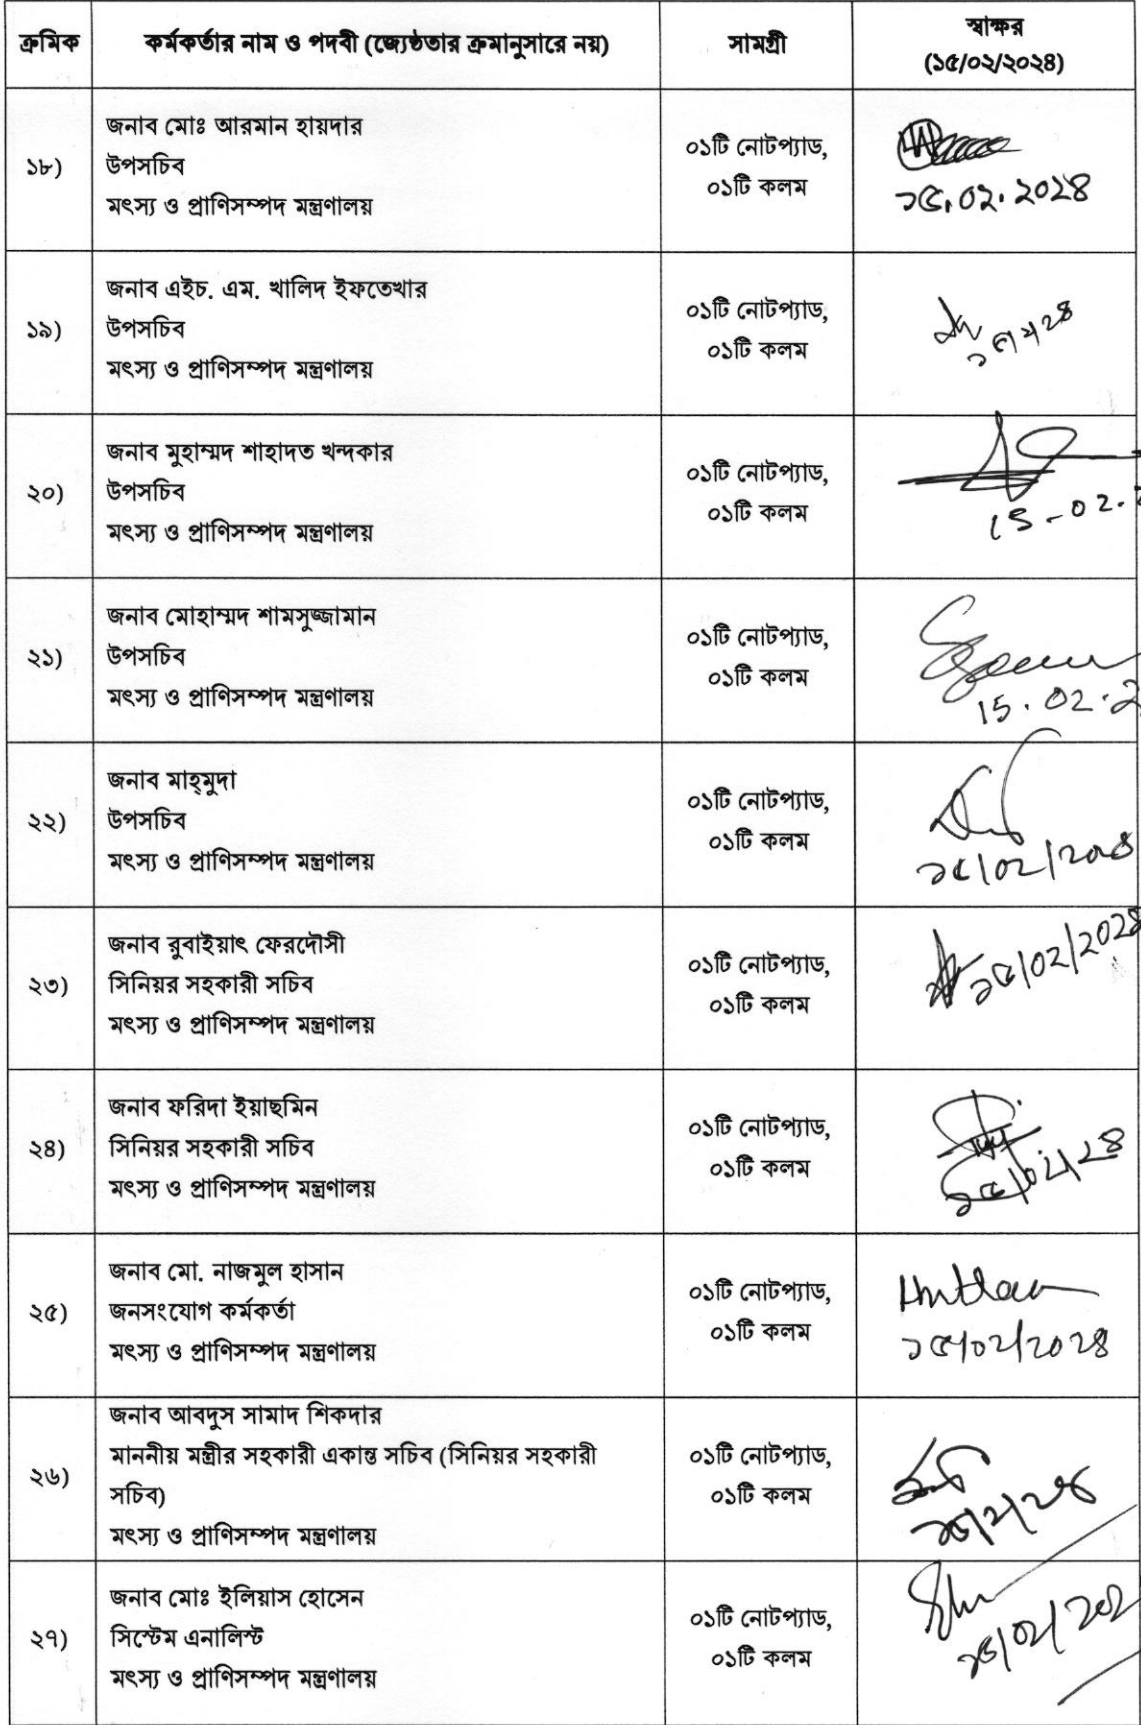 ক্রমিক
কর্মকর্তার নাম ও পদবী (জ্যেষ্ঠতার ক্রমানুসারে নয়)
সামগ্রী
স্বাক্ষর
(১৫/০২/২০২৪)
১৮)
জনাব মোঃ আরমান হায়দার
উপসচিব
মৎস্য ও প্রাণিসম্পদ মন্ত্রণালয়
০১টি নোটপ্যাড,
০১টি কলম
১৫.০২.২০২৪
১৯)
জনাব এইচ. এম. খালিদ ইফতেখার
উপসচিব
মৎস্য ও প্রাণিসম্পদ মন্ত্রণালয়
০১টি নোটপ্যাড,
০১টি কলম
২০)
জনাব মুহাম্মদ শাহাদত খন্দকার
উপসচিব
মৎস্য ও প্রাণিসম্পদ মন্ত্রণালয়
০১টি নোটপ্যাড,
০১টি কলম
15-02.
২১)
জনাব মোহাম্মদ শামসুজ্জামান
উপসচিব
মৎস্য ও প্রাণিসম্পদ মন্ত্রণালয়
০১টি নোটপ্যাড,
০১টি কলম
15.02.2
২২)
জনাব মাহ্‌মুদা
উপসচিব
মৎস্য ও প্রাণিসম্পদ মন্ত্রণালয়
০১টি নোটপ্যাড,
০১টি কলম
১৫/০২/২০২৪
২৩)
জনাব রুবাইয়াৎ ফেরদৌসী
সিনিয়র সহকারী সচিব
মৎস্য ও প্রাণিসম্পদ মন্ত্রণালয়
০১টি নোটপ্যাড,
০১টি কলম
১৫/০২/২০২৪
২৪)
জনাব ফরিদা ইয়াছমিন
সিনিয়র সহকারী সচিব
মৎস্য ও প্রাণিসম্পদ মন্ত্রণালয়
০১টি নোটপ্যাড,
০১টি কলম
১৫/০২/২৪
২৫)
জনাব মো. নাজমুল হাসান
জনসংযোগ কর্মকর্তা
মৎস্য ও প্রাণিসম্পদ মন্ত্রণালয়
০১টি নোটপ্যাড,
০১টি কলম
১৫/০২/২০২৪
২৬)
জনাব আবদুস সামাদ শিকদার
মাননীয় মন্ত্রীর সহকারী একান্ত সচিব (সিনিয়র সহকারী
সচিব)
মৎস্য ও প্রাণিসম্পদ মন্ত্রণালয়
০১টি নোটপ্যাড,
০১টি কলম
১৫/২/২৪
২৭)
জনাব মোঃ ইলিয়াস হোসেন
সিস্টেম এনালিস্ট
মৎস্য ও প্রাণিসম্পদ মন্ত্রণালয়
০১টি নোটপ্যাড,
০১টি কলম
১৫/০২/২০২